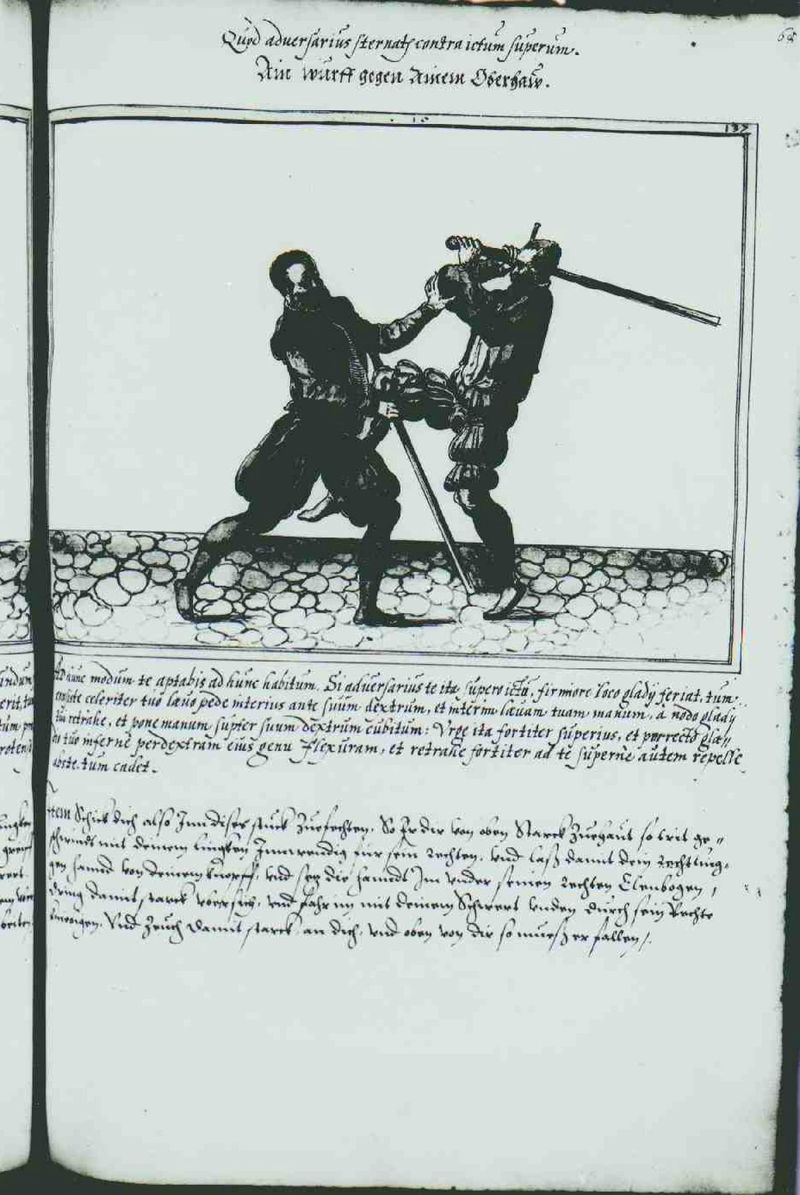 Quod adversarius sternatur contra ictum superum.
Ain wurff gegen Ainem Oberhaw.
68
16
137
Ad hunc modum te aptabis ad hunc habitum. Si adversarius te ita supero ictu, firmiore loco gladij feriat, tum
celeriter tuo laevo pede interius ante suum dextrum, et interim laevam tuam manum, à nodo gladij
tui retrahe, et pone manum supter suum dextrum cubitum: Urge ita fortiter superius, et porrecto gla-
tuo inferne per dextram eius genu flexuram, et retrahe fortiter ad te superne autem repelle
abs te. tum cadet.
Item Schick dich also Inn dises stuck Zuefechten. So Er dir von oben Starck Zuehaut so trit ge-
schwindt mit deinem lingken Innwendig für sein rechten, und laß damit dein
gen hannd von deinem knopff, und setz die hanndt Im under seinen rechten Elenbogen,
dring damit starck ubersich, und fahr im mit deinem Schwert unden durch sein Rechte
kniebogen, Und Zeuch damit starck an dich, und oben von dir so mueß er fallen.